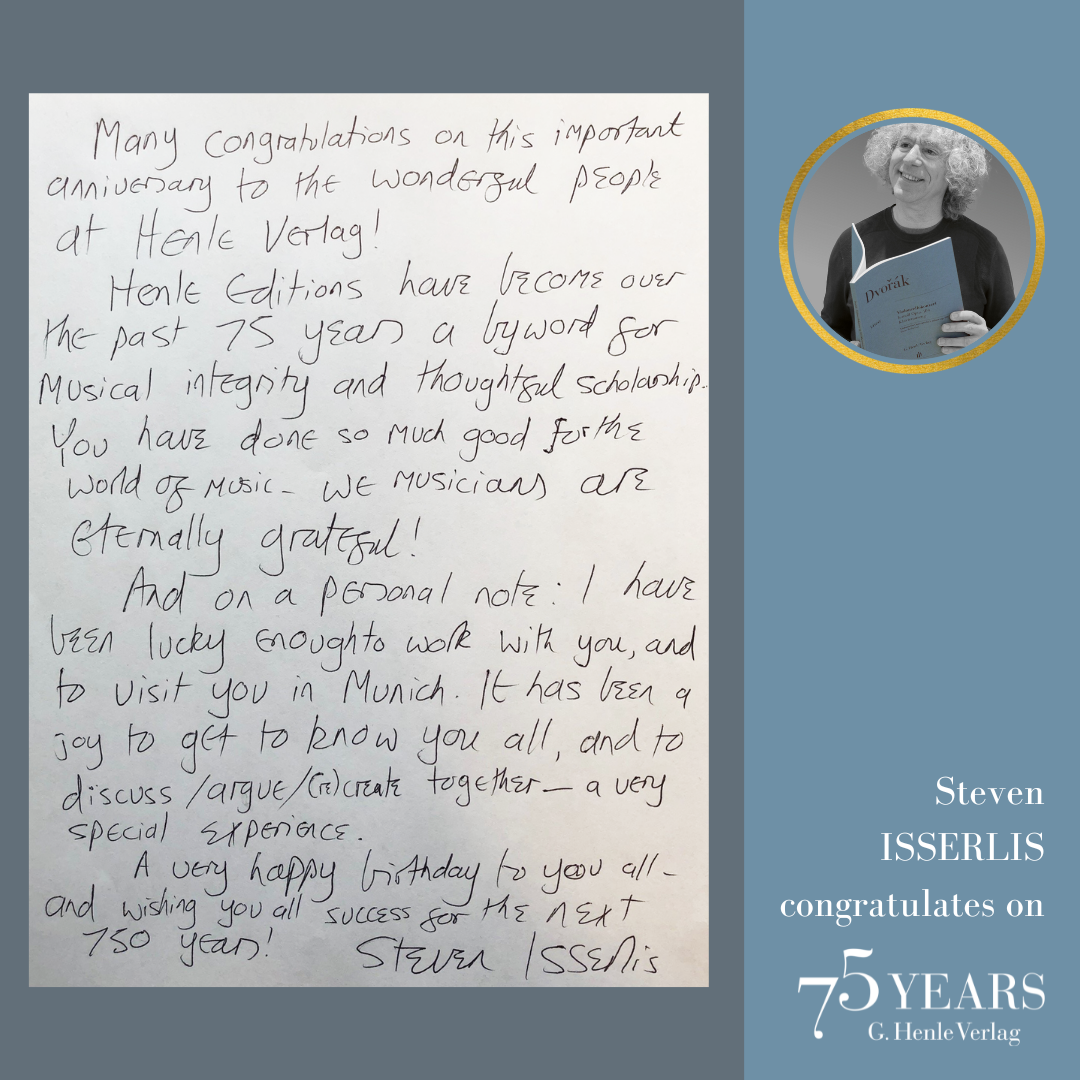 Many congratulations on this important
anniversary to the wonderful people
at Henle Verlag!
Henle Editions have become over
the past 75 years a byword for
Musical integrity and thoughtful scholarship.
You have done so much good for the
world of music - we musicians are
eternally grateful!
And on a personal note: I have
been lucky enough to work with you, and
to visit you in Munich. It has been a
joy to get to know you all, and to
discuss/argue/(re)create together - a very
special experience.
A very happy birthday to you all -
and wishing you all success for the next
750 years!
Steven Isserlis
Dvořák
Steven
ISSERLIS
congratulates on
75 YEARS
G. Henle Verlag